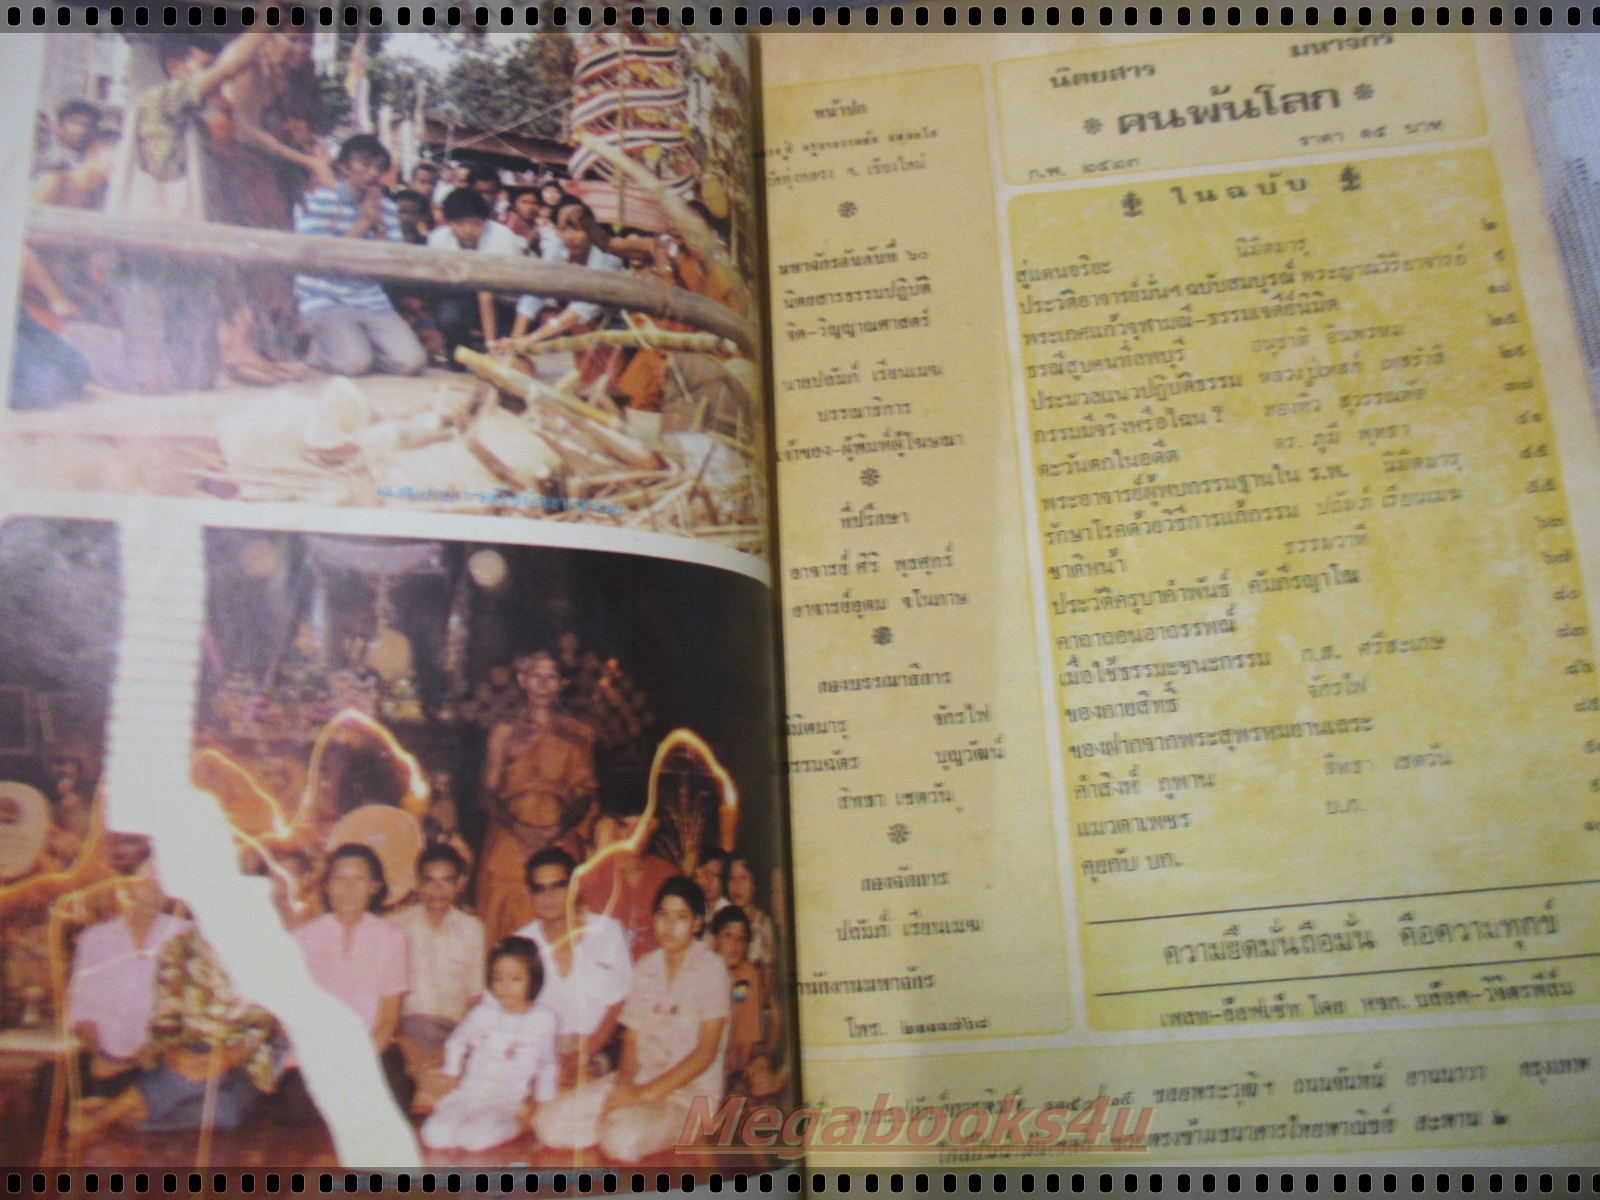 หน้าปก
จ. เชียงใหม่
มหาจักรอันดับที่ ๖๐
นิตยสารธรรมปฏิบัติ
จิต–วิญญาณศาสตร์
นายปถัมภ์ เรียนเมฆ
บรรณาธิการ
เจ้าของ–ผู้พิมพ์ผู้โฆษณา
ที่ปรึกษา
อาจารย์ ศิริ พุธศุกร์
อาจารย์อุดม
กองบรรณาธิการ
นิมิตมารุ จักรไฟ
ธรรมฉัตร บุญวัฒน์
สิทธา เชตวัน
กองจัดการ
ปถัมภ์ เรียนเมฆ
สำนักงานมหาจักร
โทร.
นิตยสาร มหาจักร
คนพ้นโลก
ก.พ. ๒๕๒๓ ราคา ๑๕ บาท
ในฉบับ
สู่แดนอริยะ นิมิตมารุ ๒
ประวัติอาจารย์มั่นฯ ฉบับสมบูรณ์ พระญาณวิริยาจารย์ ๙
พระเกศแก้วจุฬามณี–ธรรมเจดีย์นิมิต ๑๘
ธรณีสูบคนที่ลพบุรี อนุชาติ อินพรหม ๒๕
ประมวลแนวปฏิบัติธรรม หลวงปู่เทสก์ เทสรังสี
กรรมมีจริงหรือไฉน ? ทองทิว สุวรรณทัต ๓๗
ตะวันตกในอดีต ดร. ภูมิ พุทธา ๔๑
พระอาจารย์ผู้พบกรรมฐานใน ร.พ. นิมิตมารุ ๔๕
รักษาโรคด้วยวิธีการแก้กรรม ปถัมภ์ เรียนเมฆ ๕๕
ชาติหน้า ธรรมวาที ๖๓
ประวัติครูบาคำพันธุ์ คัมภีรญาโณ ๖๗
คาถาถอนอาถรรพณ์ ๘๐
เมื่อใช้ธรรมะชนะกรรม ก.ส. ศรีสะเกษ ๘๓
ของกายสิทธิ์ จักรไฟ ๘๖
ของฝากจากพระสุพรหมยานเถระ
คำสิงห์ ภูพาน สิทธา เชตวัน
แมวตาเพชร บ.ก.
คุยกับ บก.
ความยึดมั่นถือมั่น คือความทุกข์
เพลท–อ๊อฟเซ็ท โดย หจก. บล๊อค–วิจิตรฟิล์ม
ซอยพระวุฒิฯ ถนนจันทน์ ยานนาวา กรุงเทพ
ตรงข้ามธนาคารไทยพาณิชย์ สะพาน ๒
Megabooks4u